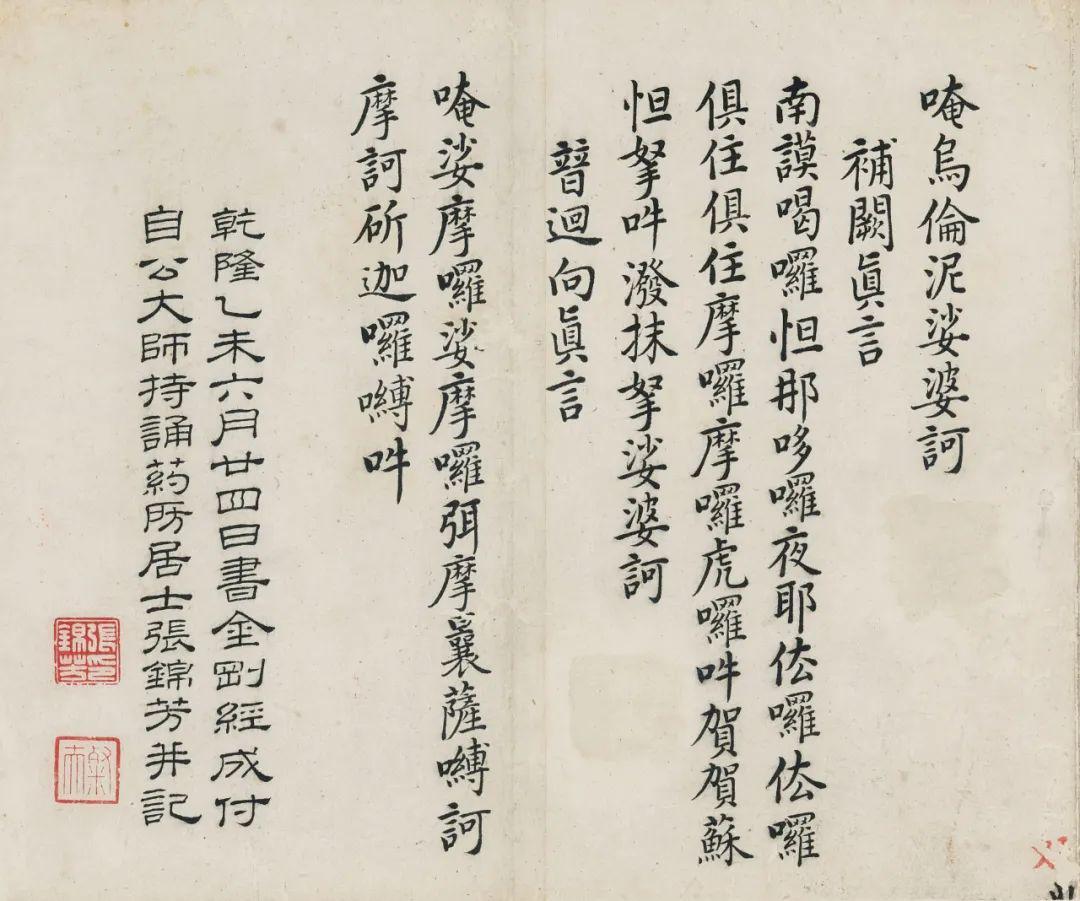 唵烏倫泥娑婆訶
補闕眞言
南謨喝囉怛那哆囉夜耶佉囉佉囉
俱住俱住摩囉摩囉虎囉吽賀賀蘇
怛拏吽潑抹拏娑婆訶
普迴向眞言
唵娑摩囉娑摩囉弭摩曩薩嚩訶
摩訶斫迦囉嚩吽
乾隆乙未六月廿四日書金剛經成付
自公大師持誦葯房居士張錦芳并記
張錦芳印
粲夫